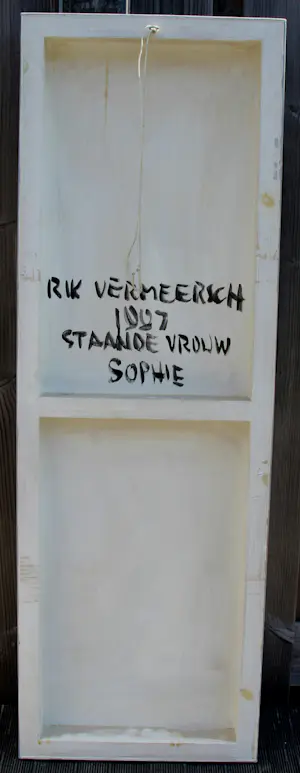 RIK VERMEERSCH
1997
STAANDE VROUW
SOPHIE